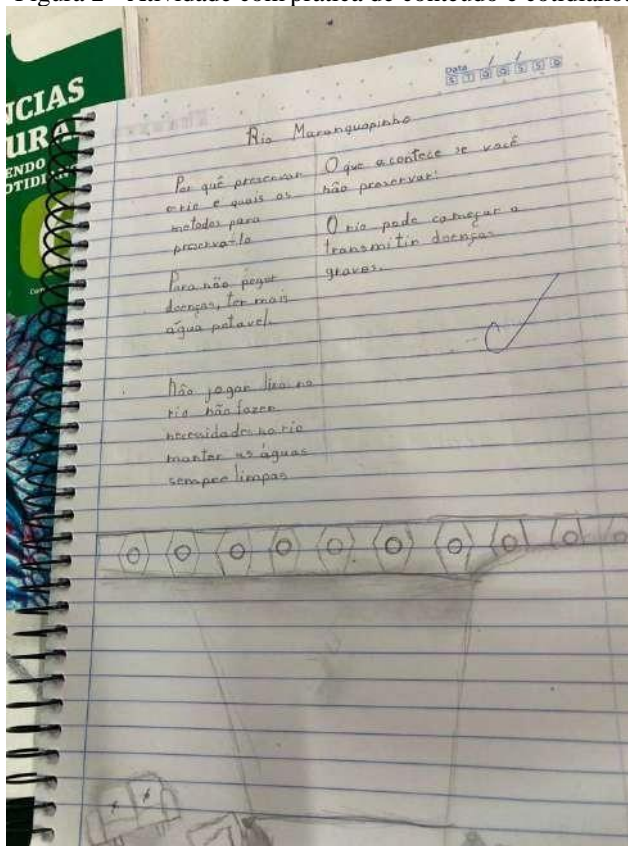 Figura 2 - Atividade com prática de conteúdo e cotidiano.
CIAS
URA
ENDO
OTIDI
Data
S T Q Q S S D
Rio Maranguapinho
Por quê preservar
o rio e quais os
metodos para
preserva-lo
Para não pegar
doenças, ter mais
água potavel.
Não jogar lixo no
rio não fazer
necessidades no rio
manter as águas
sempre limpas
O que acontece se você
não preservar?
O rio pode começar a
transmitir doenças
graves.